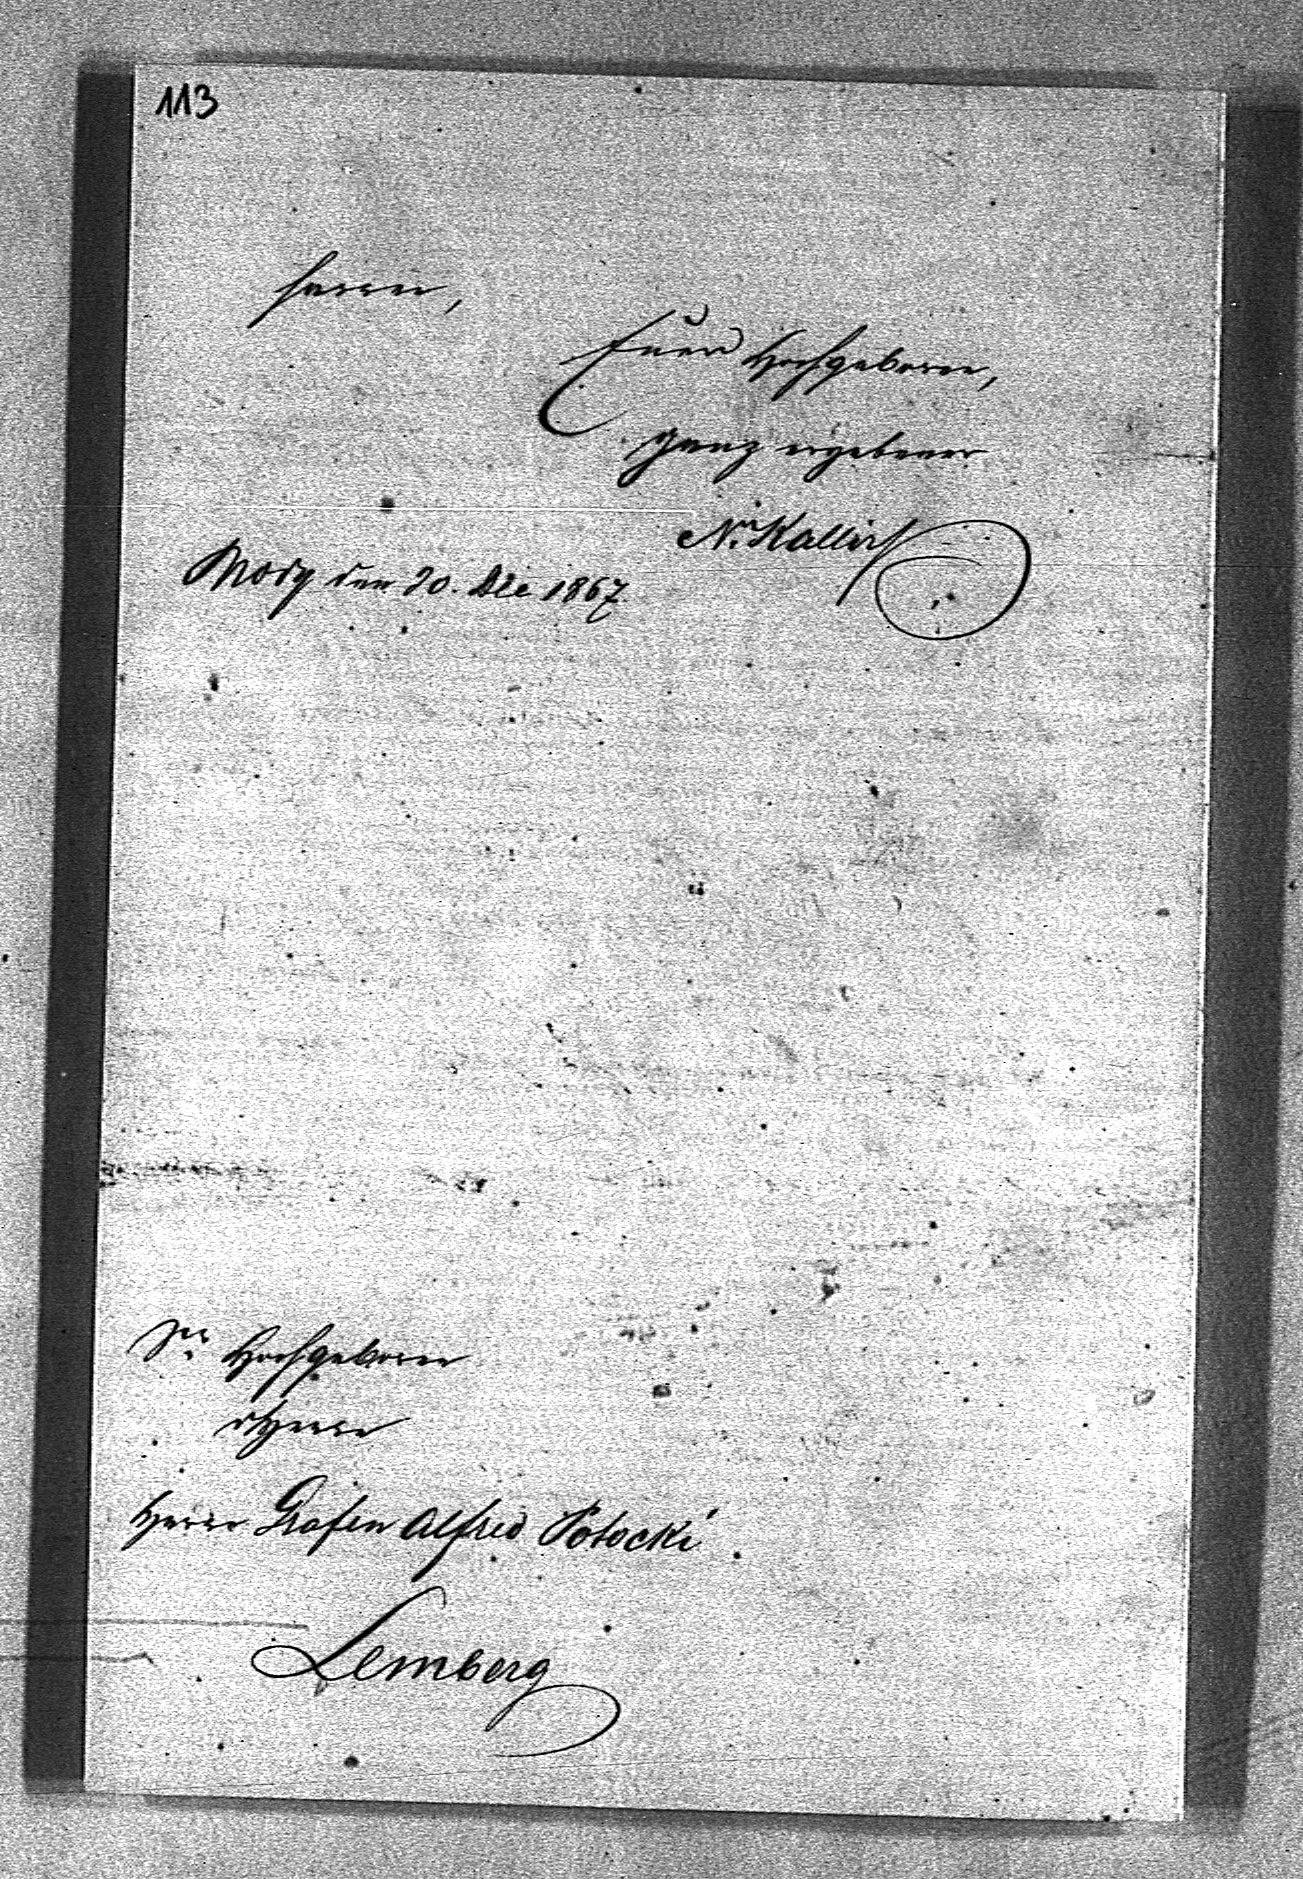 113
harren,
Euer Hochgeboren,
ganz ergebener
Nn. Kallir
Brody den 20. Dec 1867
Sr. Hochgeboren
Herrn
Herrn Grafen Alfred Potocki
Lemberg